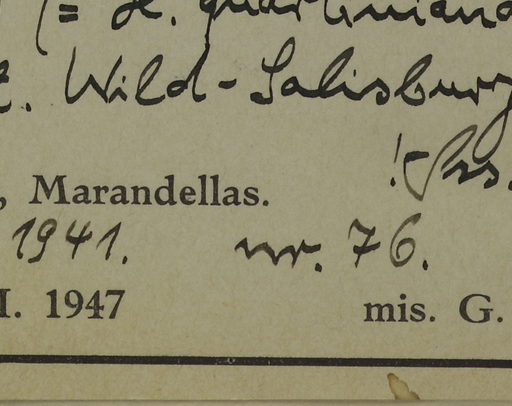 (= H. quartiniana
. Wild-Salisbury
, Marandellas.
1941. nr. 76.
I. 1947 mis. G.